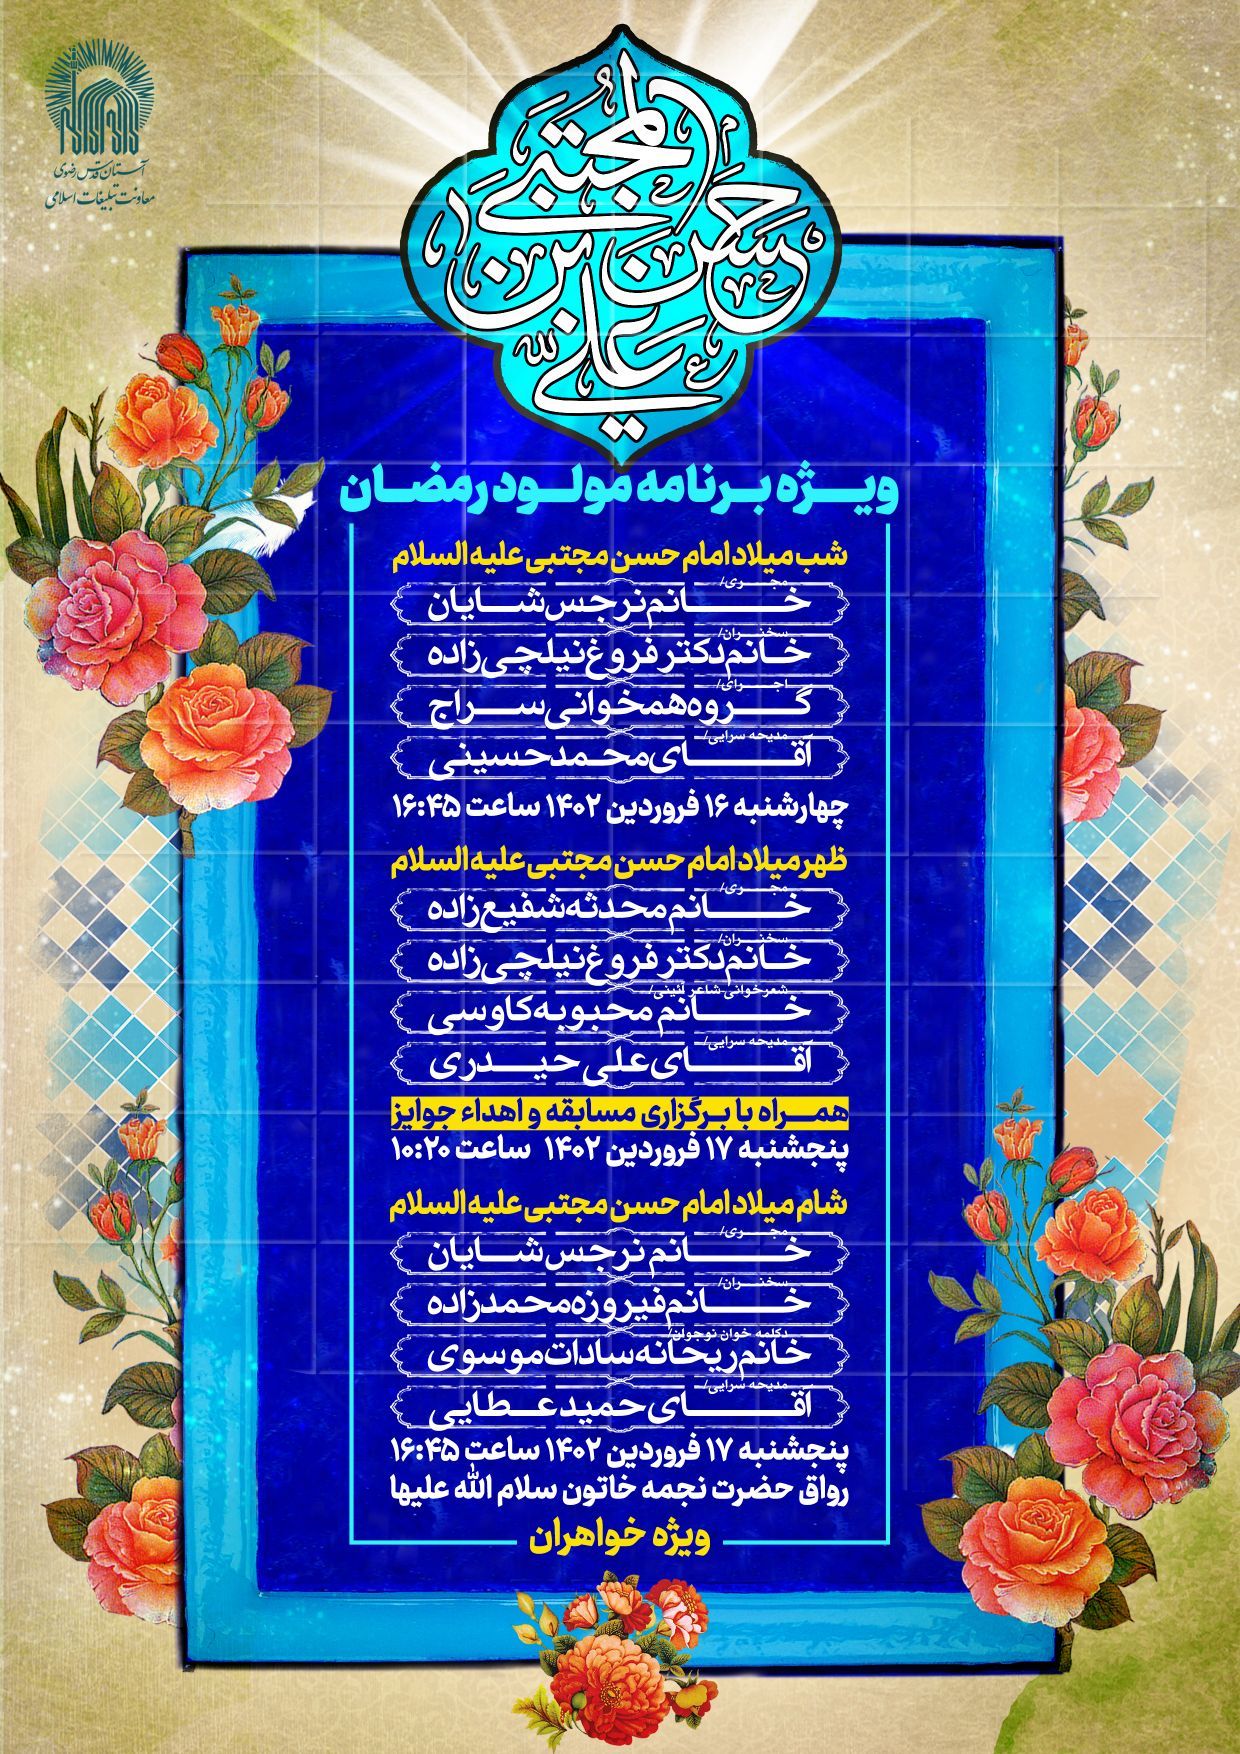 آستان قدس رضوی
معاونت تبلیغات اسلامی
حسن بن علی المجتبی
ویژه برنامه مولود رمضان
شب میلاد امام حسن مجتبی علیه السلام
مجری/
خانم نرجس شایان
سخنران/
خانم دکتر فروغ نیلچی زاده
اجرای/
گروه همخوانی سراج
مدیحه سرایی/
آقای محمد حسینی
چهارشنبه ۱۶ فروردین ۱۴۰۲ ساعت ۱۶:۴۵
ظهر میلاد امام حسن مجتبی علیه السلام
مجری/
خانم محدثه شفیع زاده
سخنران/
خانم دکتر فروغ نیلچی زاده
شعرخوانی شاعر آئینی/
خانم محبوبه کاوسی
مدیحه سرایی/
آقای علی حیدری
همراه با برگزاری مسابقه و اهداء جوایز
پنجشنبه ۱۷ فروردین ۱۴۰۲ ساعت ۱۰:۲۰
شام میلاد امام حسن مجتبی علیه السلام
مجری/
خانم نرجس شایان
سخنران/
خانم فیروزه محمدزاده
دکلمه خوان نوجوان/
خانم ریحانه سادات موسوی
مدیحه سرایی/
آقای حمید عطایی
پنجشنبه ۱۷ فروردین ۱۴۰۲ ساعت ۱۶:۴۵
رواق حضرت نجمه خاتون سلام الله علیها
ویژه خواهران